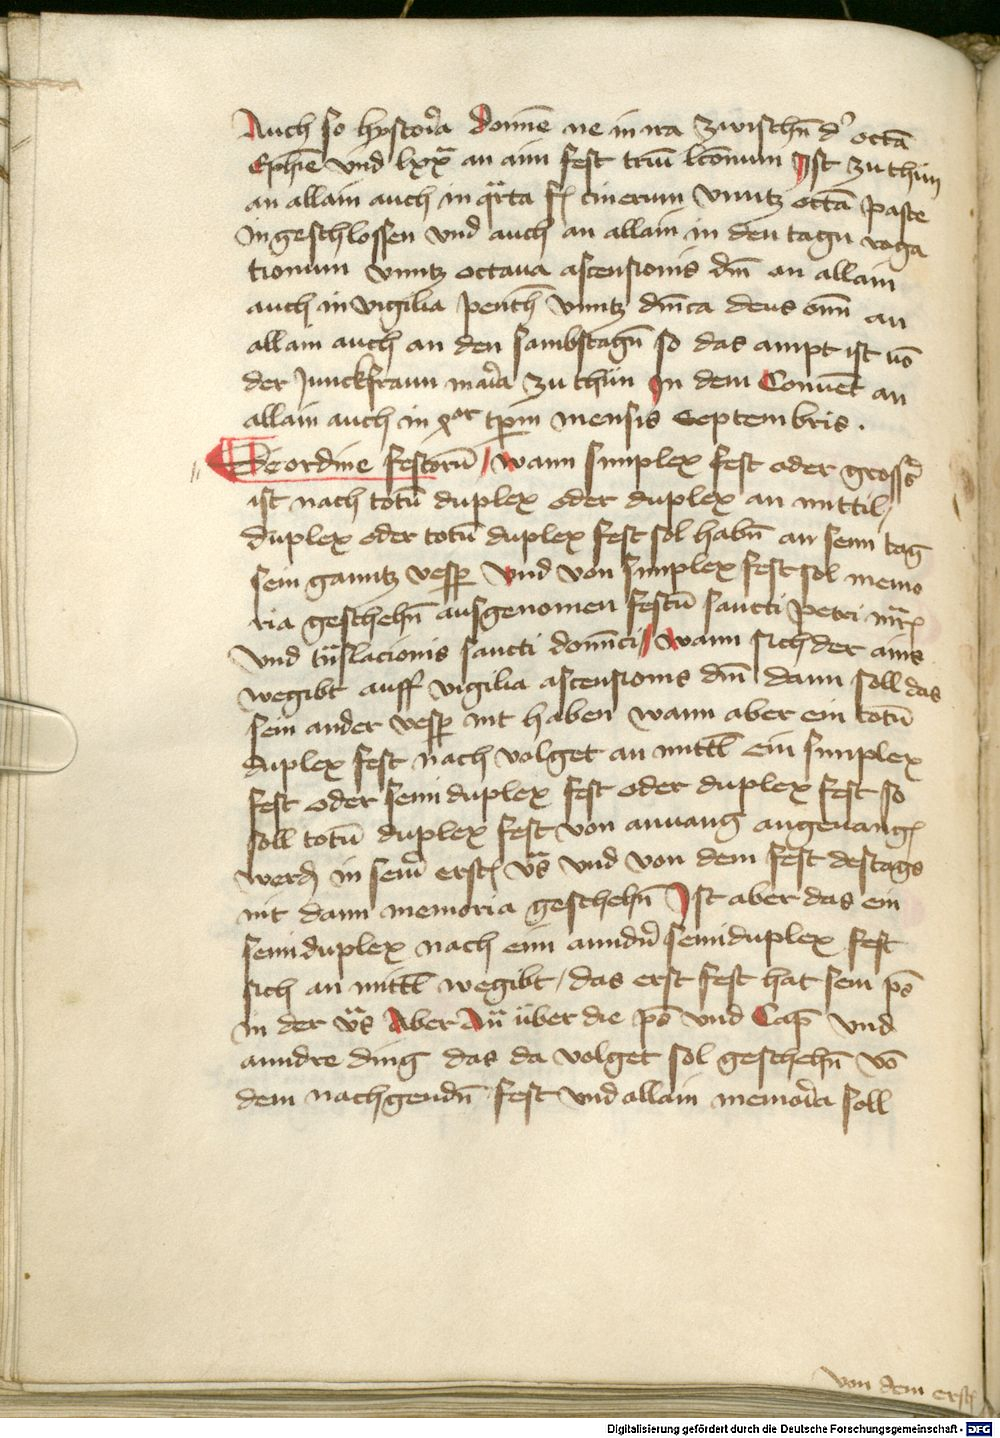 Auch so hystoria Domīe ne in ira zwischn̄ d' octā
Ephīe vnd lxxᵃ an aim fest triū lc̄onum Ist zu thůn
an allain auch in qᵃrta fᵉ cinerum vnntz octā pasce
Ingeschlossen vnd auch an allain in den tagn roga
tionum vnntz octaua ascensionis dm̄ an allain
auch in vigilia penth̄ vnntz dn̄ica deus om̄ an
allain auch an den sambstagn̄ so das ampt ist vō
der Junckfraun maria zu thůn In dem Conuēt an
allain auch in qᵒʳ tp̄m mensis Septembris .
De ordine festorū / wann simplex fest oder grosser
ist nach totū duplex oder duplex an mittil /
duplex oder totū duplex fest sol habn̄ an sein tag
sein ganntz vesper Vnd von simplex fest sol memo
ria geschehn̄ ausgenomen festū sancti Petri mr̄is
vnd trᵃnslacionis sancti domīci / wann sich der ains
wegibt auff vigilia ascensionis dm̄ dann soll das
sein ander vesper nit haben wann aber ein totū
duplex fest nach volget an mittl̄ ein simplex
fest oder semiduplex fest oder duplex fest so
soll totū duplex fest von anuang angeuangen
werdn in seiner erstn vᵃs vnd von dem fest des tags
nit dann memoria geschehn̄ Ist aber das ein
semiduplex nach eim anndn̄ semiduplex fest
sich an mittl̄ wegibt / das erst fest hat sein pō
in der vᵃs Aber Añ über die pō vnd Cap̄ vnd
anndre ding das da volget sol geschehn̄ vō
dem nachgendn̄ fest vnd allain memoria soll
von dem erstn
Digitalisierung gefördert durch die Deutsche Forschungsgemeinschaft - DFG